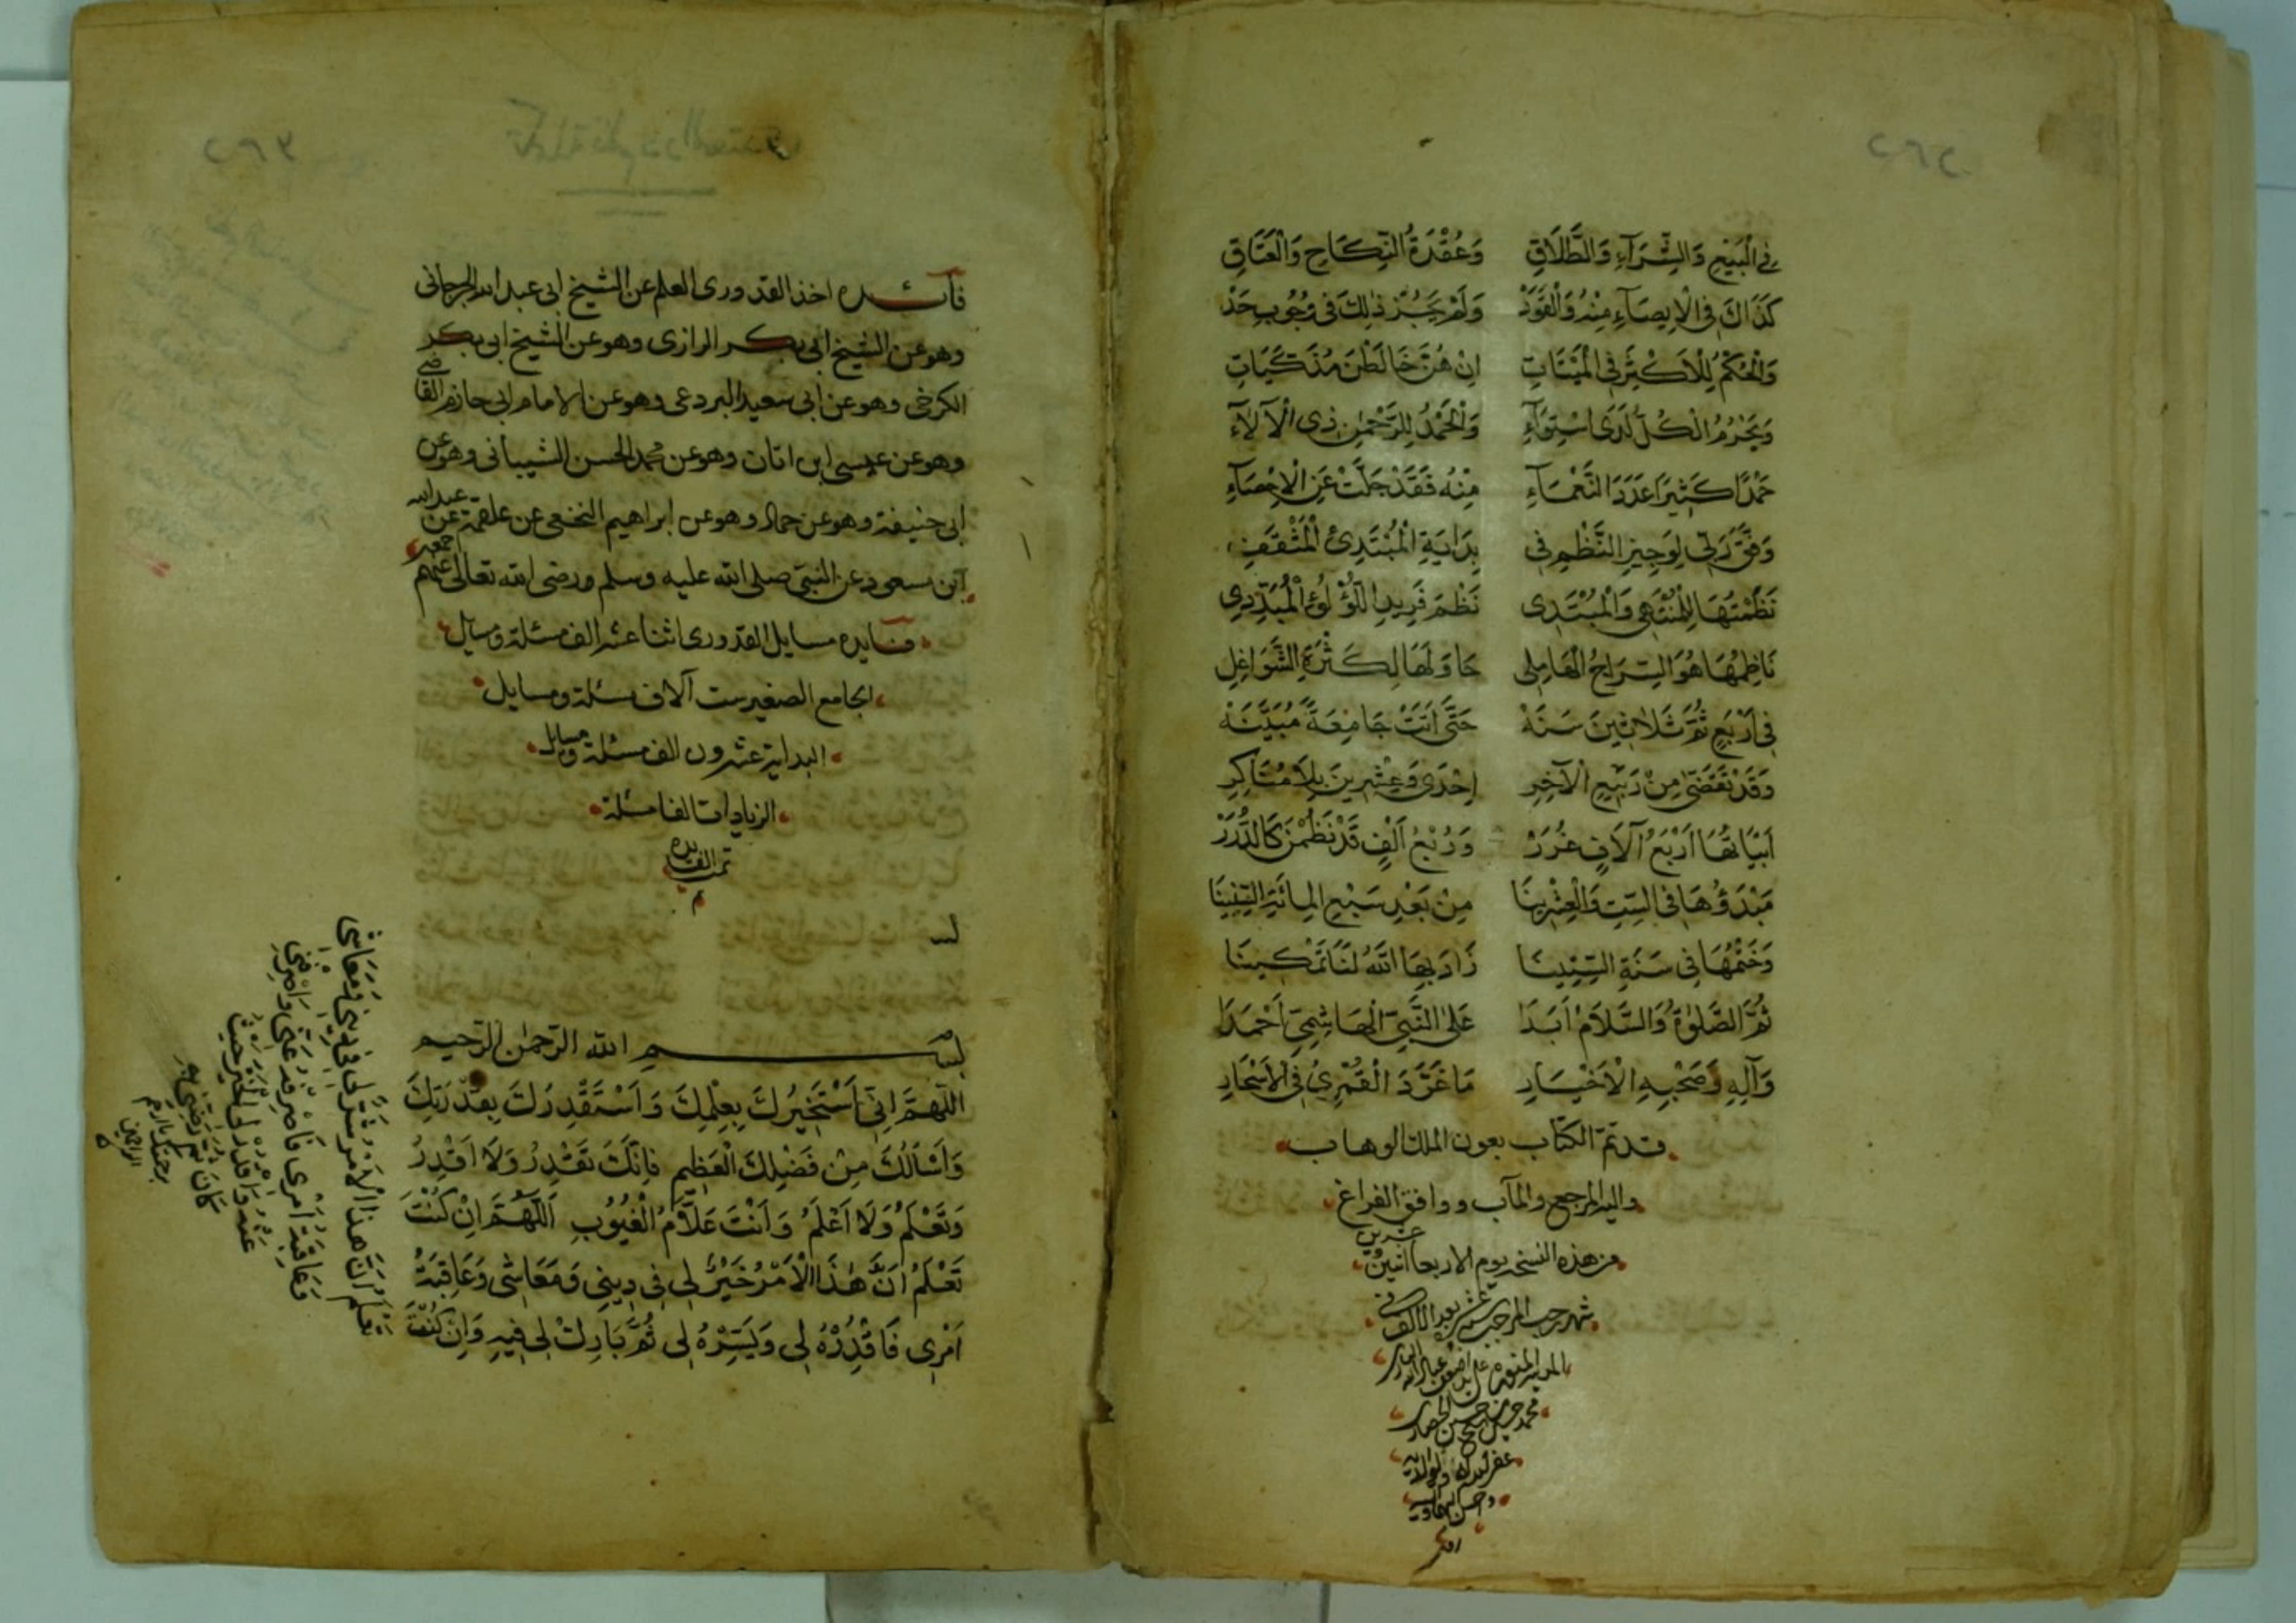 ٢٦٢
فِي الْبَيْعِ وَالشِّرَآءِ وَالطَّلَاقِ وَعُقْدَةُ النِّكَاحِ وَالْعَتَاقِ
كَذَاكَ فِي الْاِيصَآءِ مِنْهُ وَالْقَوَدْ وَلَمْ يَجُزْ ذٰلِكَ فِي وُجُوبِ حَدْ
وَالْحُكْمُ لِلْاَكْثَرِ فِي الْمَيْتَاتِ اِنْ هُنَّ خَالَطْنَ مُذَكَّيَاتِ
وَيَحْرُمُ الْكُلُّ لَدَى اسْتِوَآءِ وَالْحَمْدُ لِلرَّحْمٰنِ ذِي الْآلَآءِ
حَمْدًا كَثِيرًا عَدَدَ النَّعْمَآءِ مِنْهُ فَقَدْ جَلَّتْ عَنِ الْاِحْصَآءِ
وَفَّقَ رَبِّي لِوَجِيزِ النَّظْمِ فِي بِدَايَةِ الْمُبْتَدِئِ الْمُثَقَّفِ
نَظَمْتُهَا لِلْمُنْتَهِي وَالْمُبْتَدِي نَظْمَ فَرِيدِ اللُّؤْلُؤِ الْمُبَدَّدِ
نَاظِمُهَا هُوَ السِّرَاجُ الْهَامِلِي حَاوَلَهَا لِكَثْرَةِ الشَّوَاغِلِ
فِي اَرْبَعٍ ثُمَّ ثَلَاثِينَ سَنَهْ حَتَّى اَتَتْ جَامِعَةً مُبَيَّنَهْ
وَقَدْ تَقَضَّى مِنْ رَبِيعِ الْآخِرِ اِحْدَى وَعِشْرِينَ بِلَا مُنَاكِرِ
اَبْيَاتُهَا اَرْبَعُ آلَافٍ غُرَرْ وَرُبْعُ اَلْفٍ قَدْ نُظِمْنَ كَالدُّرَرْ
مَبْدَؤُهَا فِي السِّتِّ وَالْعِشْرِينَا مِنْ بَعْدِ سَبْعِ الْمِائَةِ السِّنِينَا
وَخَتْمُهَا فِي سَنَةِ السِّتِّينَا زَادَ بِهَا اللّٰهُ لَنَا تَمْكِينَا
ثُمَّ الصَّلٰوةُ وَالسَّلَامُ اَبَدَا عَلَى النَّبِيِّ الْهَاشِمِيِّ اَحْمَدَا
وَآلِهِ وَصَحْبِهِ الْاَخْيَارِ مَا غَرَّدَ الْقُمْرِيُّ فِي الْاَسْحَارِ
قد تم الكتاب بعون الملك الوهاب
واليه المرجع والمآب ووافق الفراغ
من هذه النسخه يوم الاربعا اثنين وعشرين
شهر رجب المرجب
٢٦٣
فآئده اخذ القدورى العلم عن الشيخ ابى عبد الله الجرجانى
وهو عن الشيخ ابى بكر الرازى وهو عن الشيخ ابى بكر
الكرخى وهو عن ابى سعيد البردعى وهو عن الامام ابى حازم القاضى
وهو عن عيسى ابن ابان وهو عن محمد الحسن الشيبانى وهو عن
ابى حنيفة وهو عن حماد وهو عن ابراهيم النخعى عن علقمة عن عبد الله
ابن مسعود عن النبى صلى الله عليه وسلم ورضى الله تعالى عنهم اجمعين
فآيده مسايل القدورى اثنا عشر الف مسئلة ومسايل
الجامع الصغير ست آلاف مسئلة ومسايل
البداية عشرون الف مسئلة ومسايل
الزيادات الفا مسئلة
تمت الفايده
م
بسم الله الرحمن الرحيم
اَللّٰهُمَّ اِنِّي اَسْتَخِيرُكَ بِعِلْمِكَ وَاَسْتَقْدِرُكَ بِقُدْرَتِكَ
وَاَسْاَلُكَ مِنْ فَضْلِكَ الْعَظِيمِ فَاِنَّكَ تَقْدِرُ وَلَا اَقْدِرُ
وَتَعْلَمُ وَلَا اَعْلَمُ وَاَنْتَ عَلَّامُ الْغُيُوبِ اَللّٰهُمَّ اِنْ كُنْتَ
تَعْلَمُ اَنَّ هٰذَا الْاَمْرَ خَيْرٌ لِي فِي دِينِي وَمَعَاشِي وَعَاقِبَةُ
اَمْرِي فَاقْدُرْهُ لِي وَيَسِّرْهُ لِي ثُمَّ بَارِكْ لِي فِيهِ وَاِنْ كُنْتَ
تَعْلَمُ اَنَّ هٰذَا الْاَمْرَ شَرٌّ لِي فِي دِينِي وَمَعَاشِي
وَعَاقِبَةُ اَمْرِي فَاصْرِفْهُ عَنِّي وَاصْرِفْنِي
عَنْهُ وَاقْدُرْ لِيَ الْخَيْرَ حَيْثُ
كَانَ ثُمَّ رَضِّنِي بِهِ
برحمتك يا ارحم
الراحمين